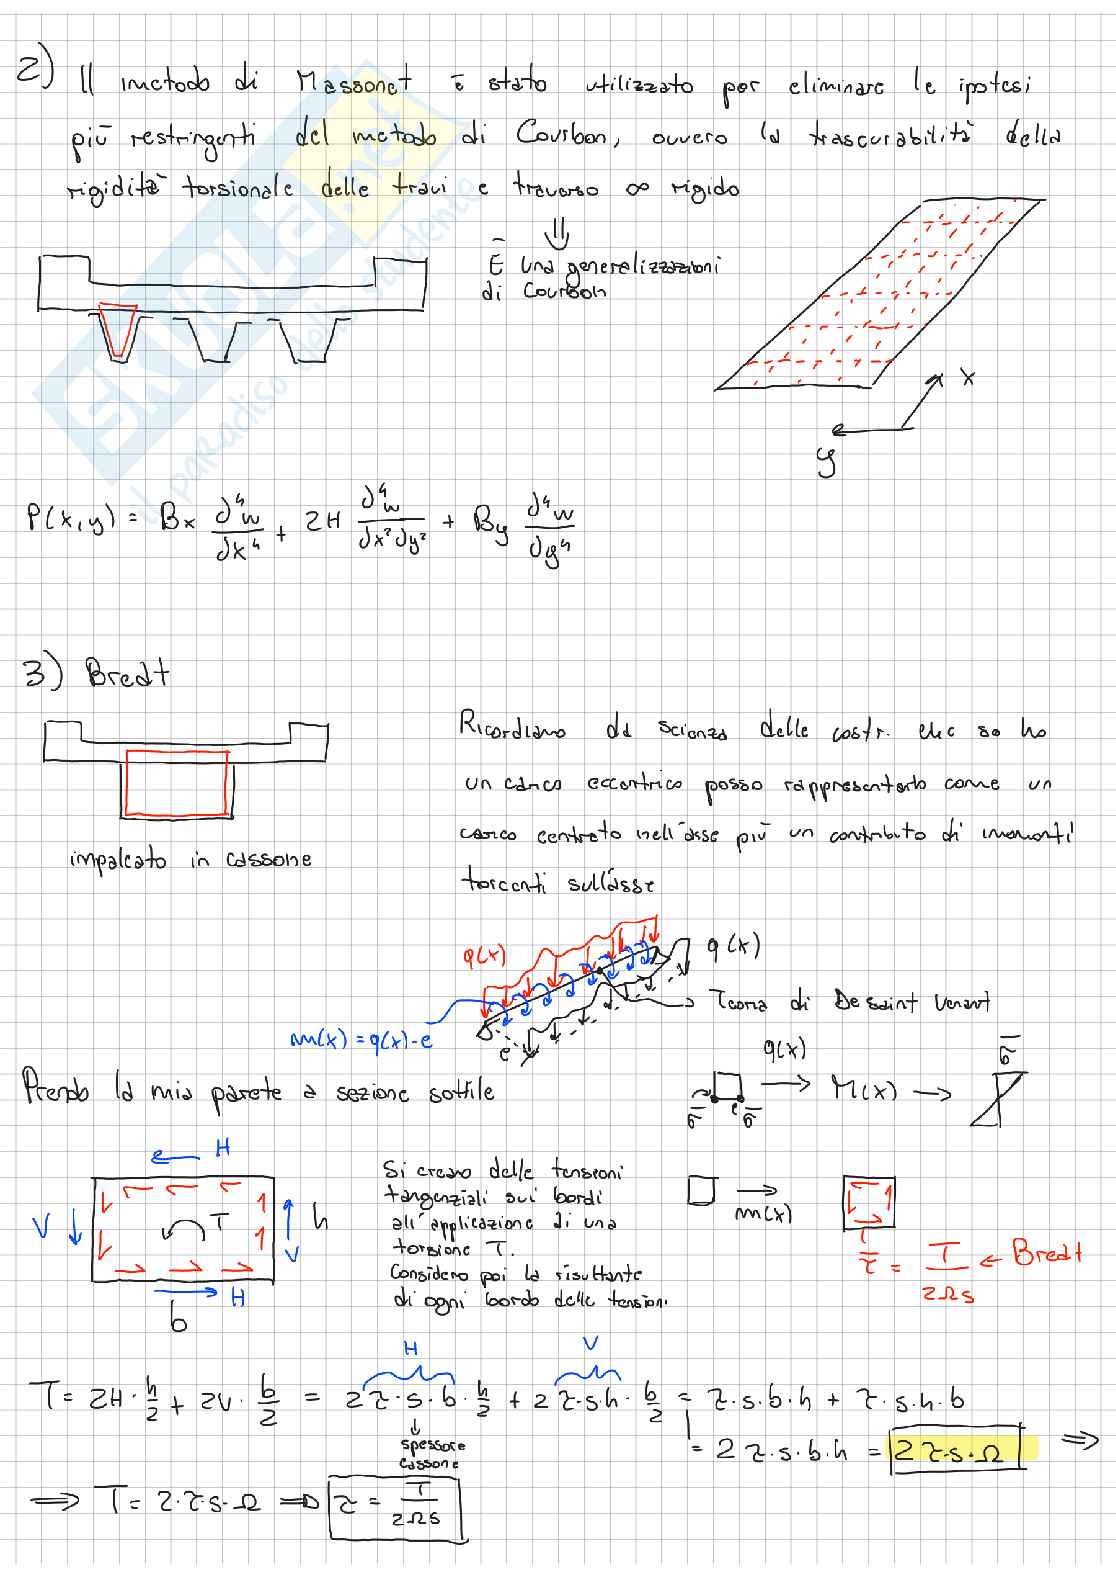 2) Il metodo di Massonet è stato utilizzato per eliminare le ipotesi
più restringenti del metodo di Courbon, ovvero la trascurabilità della
rigidità torsionale delle travi e traverso ∞ rigido
⇓
È una generalizzazioni
di Courbon
x
y
P(x,y) = Bx ∂⁴w/∂x⁴ + 2H ∂⁴w/∂x²∂y² + By ∂⁴w/∂y⁴
3) Bredt
impalcato in cassone
Ricordiamo da scienza delle costr. che se ho
un carico eccentrico posso rappresentarlo come un
carico centrato nell'asse più un contributo di momenti
torcenti sull'asse
q(x)
q(x)
m(x) = q(x)·e
e
→ Teoria di De Saint Venant
Prendo la mia parete a sezione sottile
q(x)
→ M(x) →
σ
σ
σ
H
V
T
h
V
H
b
Si creano delle tensioni
tangenziali sui bordi
all'applicazione di una
torsione T.
Considero poi la risultante
di ogni bordo delle tensioni.
→
m(x)
τ = T/2Ωs ← Bredt
H
V
T = 2H·h/2 + 2V·b/2 = 2τ·s·b·h/2 + 2τ·s·h·b/2 = τ·s·b·h + τ·s·h·b
↓
spessore
cassone
= 2τ·s·b·h = 2τ·s·Ω ⇒
⇒ T = 2·τ·s·Ω ⇒ τ = T/2Ωs
skuola.net
il paradiso dello studente